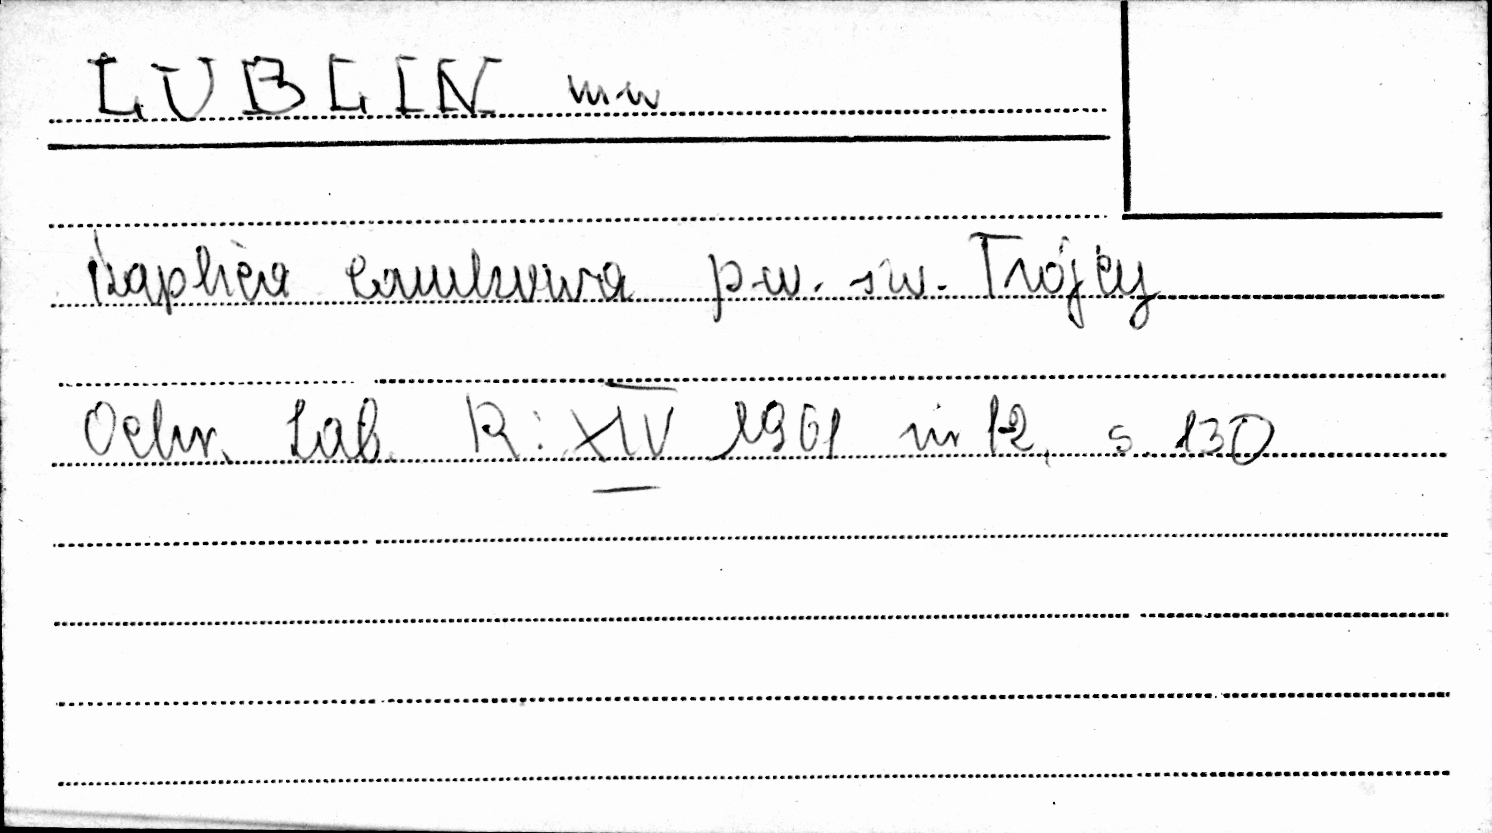 LUBLIN m.w
Kaplica zamkowa p.w. św. Trójcy
Ochr. Zab. R: XIV 1961 nr 1-2, s. 130